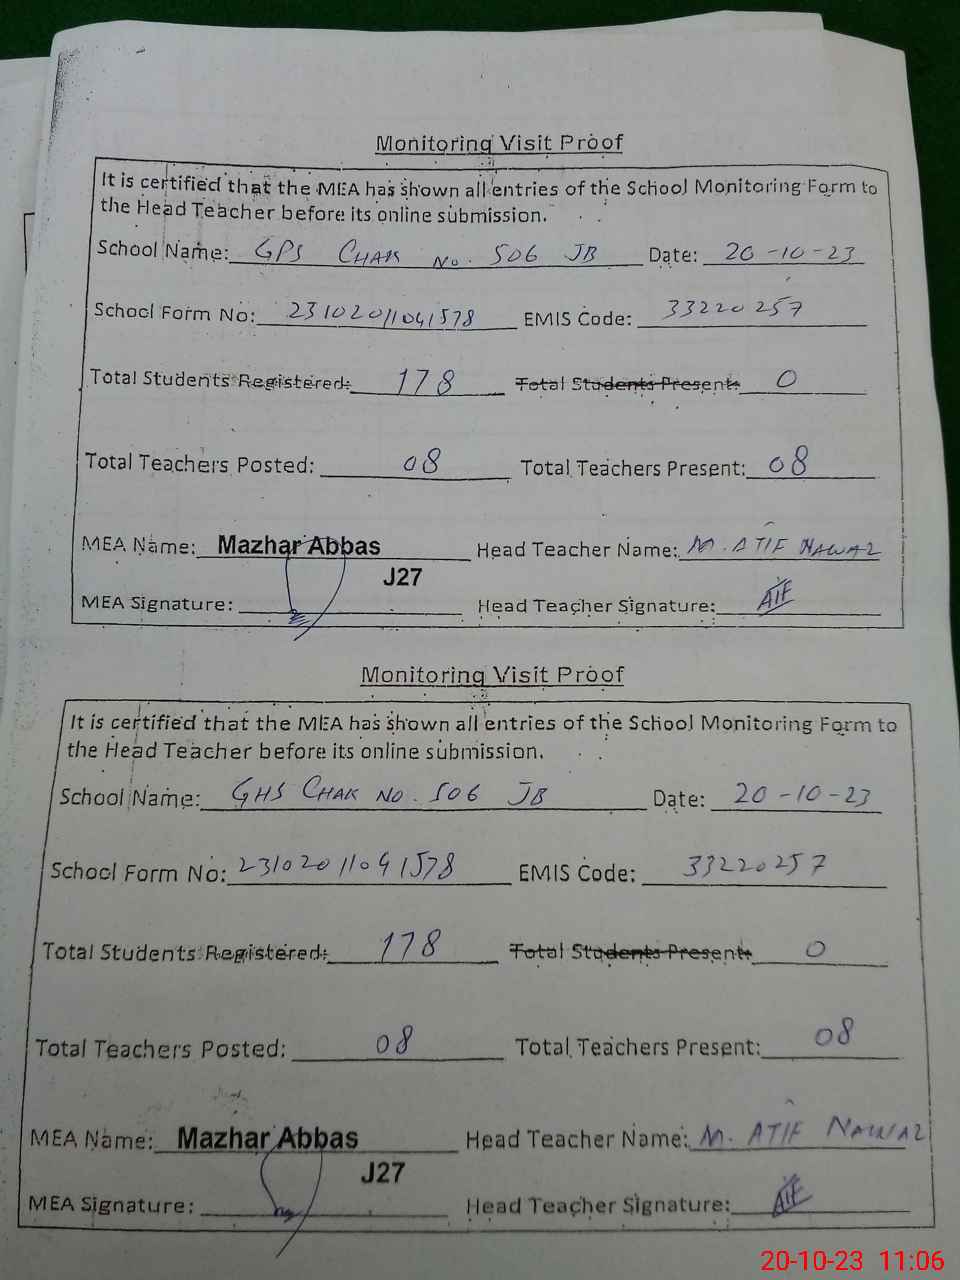 Monitoring Visit Proof
It is certified that the MEA has shown all entries of the School Monitoring Form to
the Head Teacher before its online submission.
School Name: GPS CHAK No. 506 JB Date: 20-10-23
School Form No: 23102011041578 EMIS Code: 33220257
Total Students Registered: 178 Total Students Present: 0
Total Teachers Posted: 08 Total Teachers Present: 08
MEA Name: Mazhar Abbas Head Teacher Name: M. ATIF NAWAZ
J27
MEA Signature: Head Teacher Signature: ATF
Monitoring Visit Proof
It is certified that the MEA has shown all entries of the School Monitoring Form to
the Head Teacher before its online submission.
School Name: GHS CHAK NO. 506 JB Date: 20-10-23
School Form No: 23102011041578 EMIS Code: 33220257
Total Students Registered: 178 Total Students Present: 0
Total Teachers Posted: 08 Total Teachers Present: 08
MEA Name: Mazhar Abbas Head Teacher Name: M. ATIF NAWAZ
J27
MEA Signature: Head Teacher Signature: ATF
20-10-23 11:06